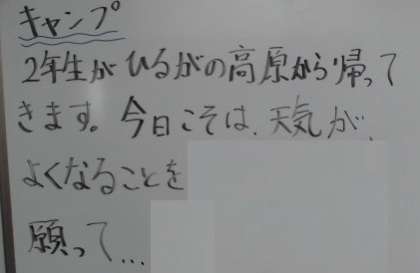 キャンプ
2年生がひるがの高原から帰って
きます。今日こそは、天気が、
よくなることを
願って...